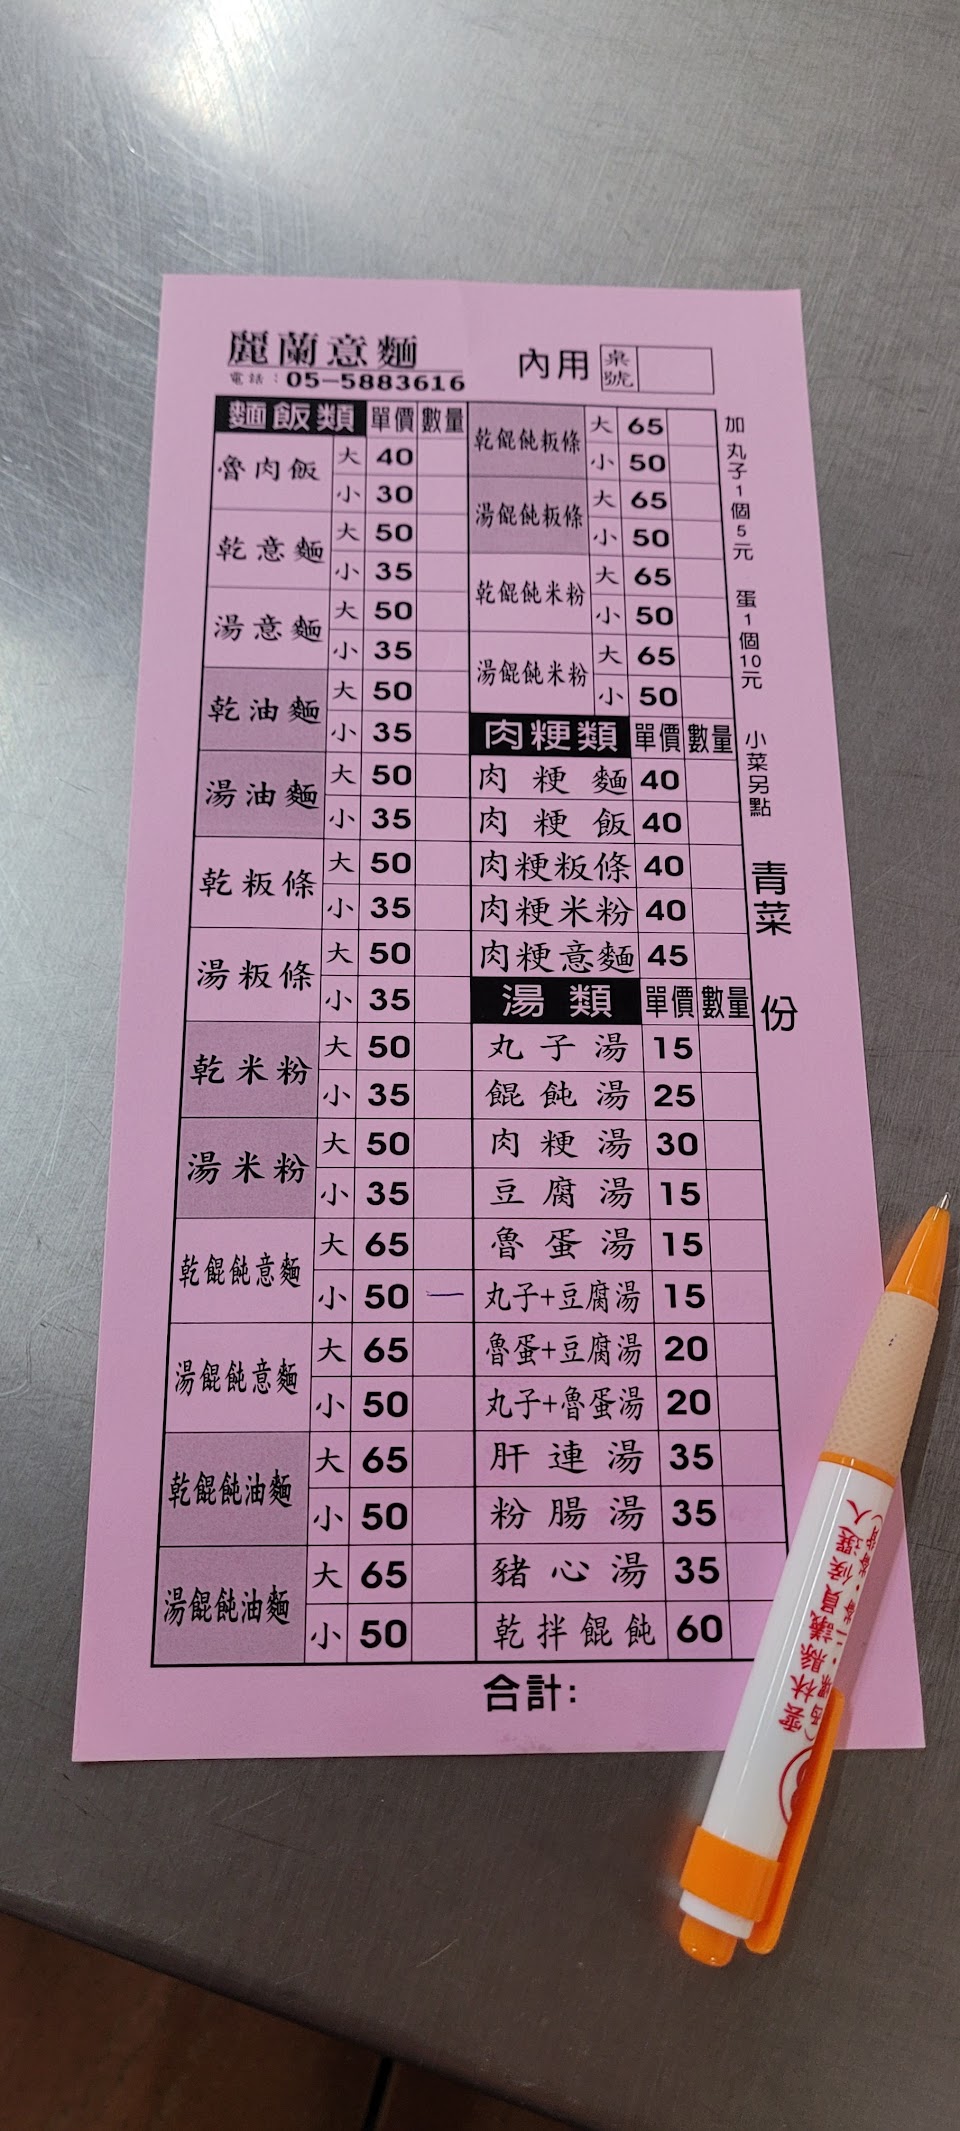 麗蘭意麵
電話：05-5883616
內用 桌號
麵飯類 單價 數量
魯肉飯 大 40
小 30
乾意麵 大 50
小 35
湯意麵 大 50
小 35
乾油麵 大 50
小 35
湯油麵 大 50
小 35
乾粄條 大 50
小 35
湯粄條 大 50
小 35
乾米粉 大 50
小 35
湯米粉 大 50
小 35
乾餛飩意麵 大 65
小 50 一
湯餛飩意麵 大 65
小 50
乾餛飩油麵 大 65
小 50
湯餛飩油麵 大 65
小 50
乾餛飩粄條 大 65
小 50
湯餛飩粄條 大 65
小 50
乾餛飩米粉 大 65
小 50
湯餛飩米粉 大 65
小 50
肉粳類 單價 數量
肉粳麵 40
肉粳飯 40
肉粳粄條 40
肉粳米粉 40
肉粳意麵 45
湯類 單價 數量
丸子湯 15
餛飩湯 25
肉粳湯 30
豆腐湯 15
魯蛋湯 15
丸子+豆腐湯 15
魯蛋+豆腐湯 20
丸子+魯蛋湯 20
肝連湯 35
粉腸湯 35
豬心湯 35
乾拌餛飩 60
合計:
加丸子1個5元 蛋1個10元 小菜另點
青菜 份
雲林縣議員候選人